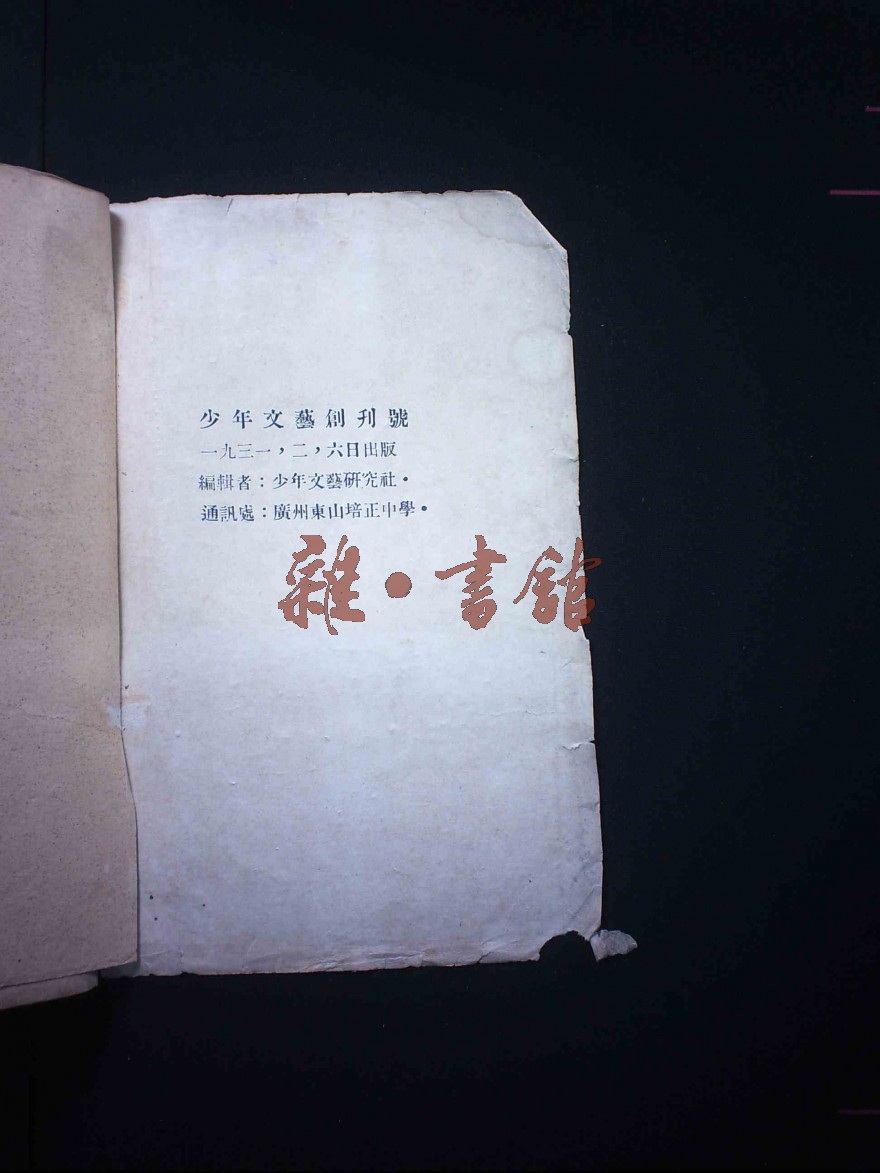 少年文藝創刊號
一九三一，二，六日出版
編輯者：少年文藝硏究社•
通訊處：廣州東山培正中學•
雜•書館